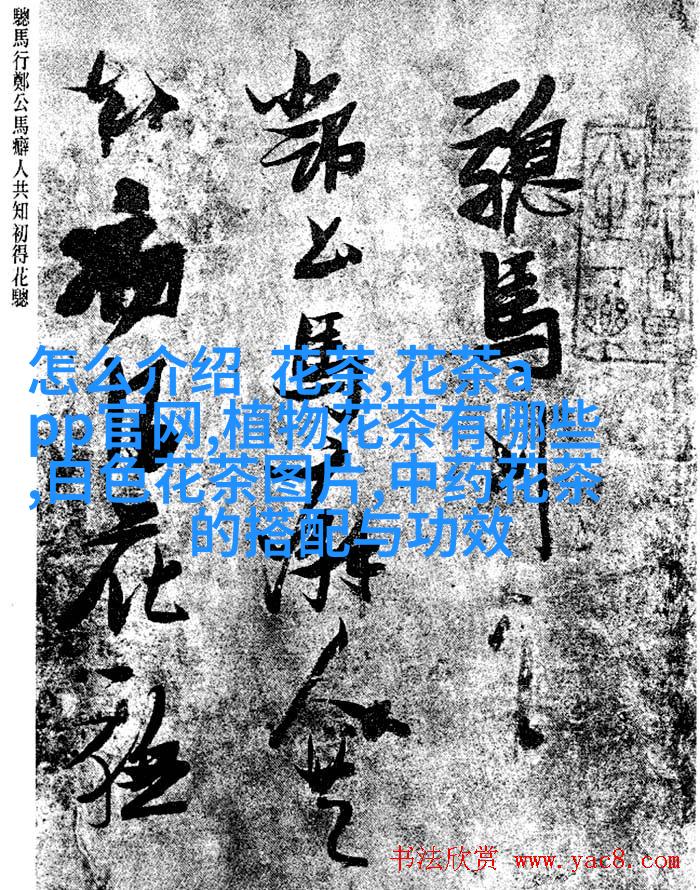 驄馬行
鄭公馬癖人共
知初得花驄
驄馬行鄭公馬癖人共知初得花驄
怎么介绍 花茶,花茶a
pp官网,植物花茶有哪些
,白色花茶图片,中药花茶
的搭配与功效
书法欣赏 www.yac8.com